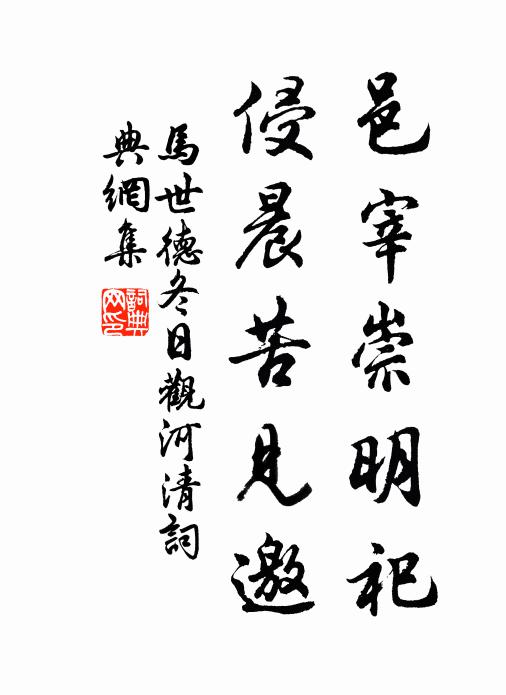 邑宰崇明祀
侵晨苦見邀
馬世德冬日觀河清詞
典網集
詞典网印